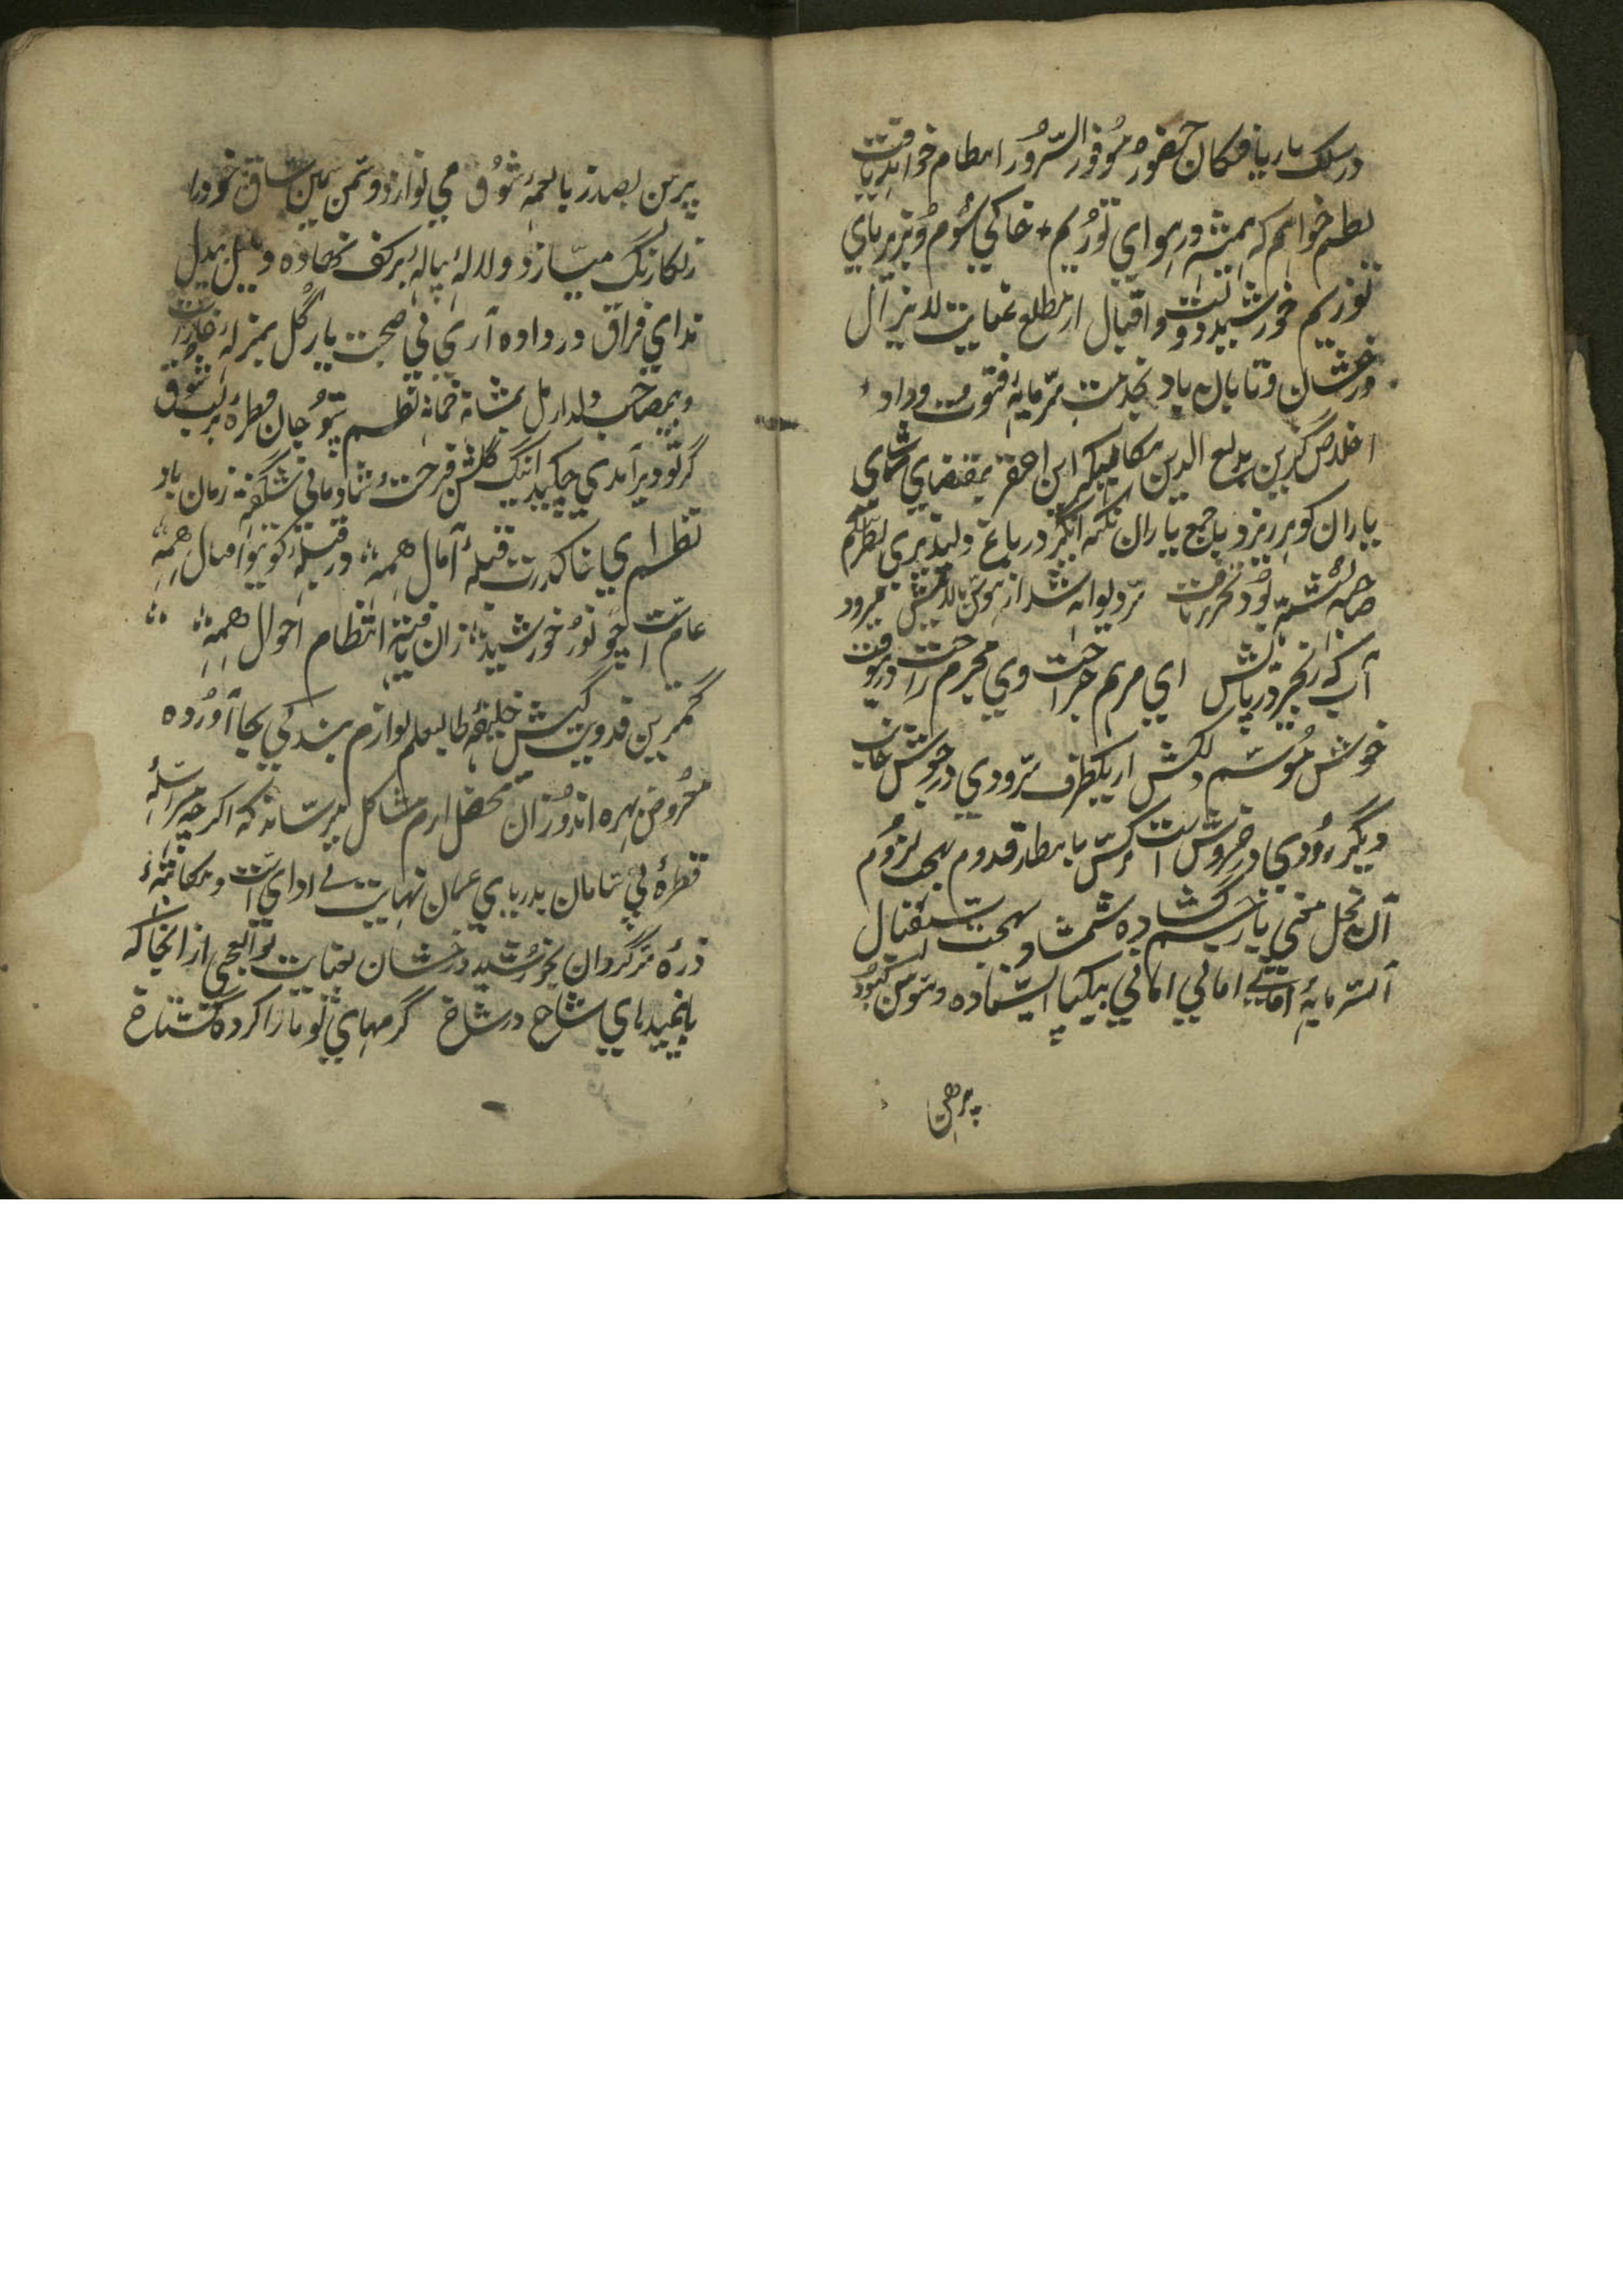 در سلک باریافتگان حضور موفور السرور انتظام خواهد یافت
نظم خواهم که همیشه در هوای تو زیم + خاکی شوم و بزیر پای
تو زیم خورشید دولت و اقبال از مطلع عنایت لایزال
درخشان و تابان باد بخدمت سرمایه فتوت و وداد
اخلاص گزین بدیع الدین مکا این احقر بمقتضای
یاران کو برریزد با جمع یاران نکته انگیز در باغ دلپذیری نظم
بود تحریر یافت دیوانه شد از هوش میرود
آب که زنجیر در پایش ای مرهم جراحت وی محرم راحت
خوش موسم دلکش از یکطرف سرودی در جوش
دیگر رودی در خروش است نرگس بانتظار قدوم بهجت لزوم
آن نخل چشم گشاده شمشاد بهجت استقبال
آن سرمایه امانی بیکپا ایستاده و سوسن کبود
پیرهن
پیرهن بصد زبان نغمهٔ شوق می نوازد و سمن سیمین ساق خود را
زنگار رنگ میسازد و لاله پیاله بر کف نهاده و بلبل بیدل
ندای فراق در داده آری بی صحبت یار گل بمنزله خار است
و بمصاحب دلدار مل بمشابه نظم بیتو جان قطره بر لب شوق
گر تو دیر آمدی چکید اینک گلشن فرحت و شادمانی شگفته زمان باد
نظم ای خاک درت قبلهٔ آمال همه در قبله کوی تو اقبال همه
عام است چو نور خورشید زان یافته انتظام احوال همه
کمترین فدویت کیش خلیفه طالبعلم لوازم بندگی بجا آورده
معروض بهره اندوزان محفل ارم مشاکل میرساند که اگرچه مراسله
قطرهٔ بی سامان بدریای عمان نهایت بی ادای است و مکاتبهٔ
ذره سرگردان بخورشید درخشان بغایت بوالعجبی از انجا که
بامیدهای شاخ در شاخ کرمهای تو ما را کرد گستاخ